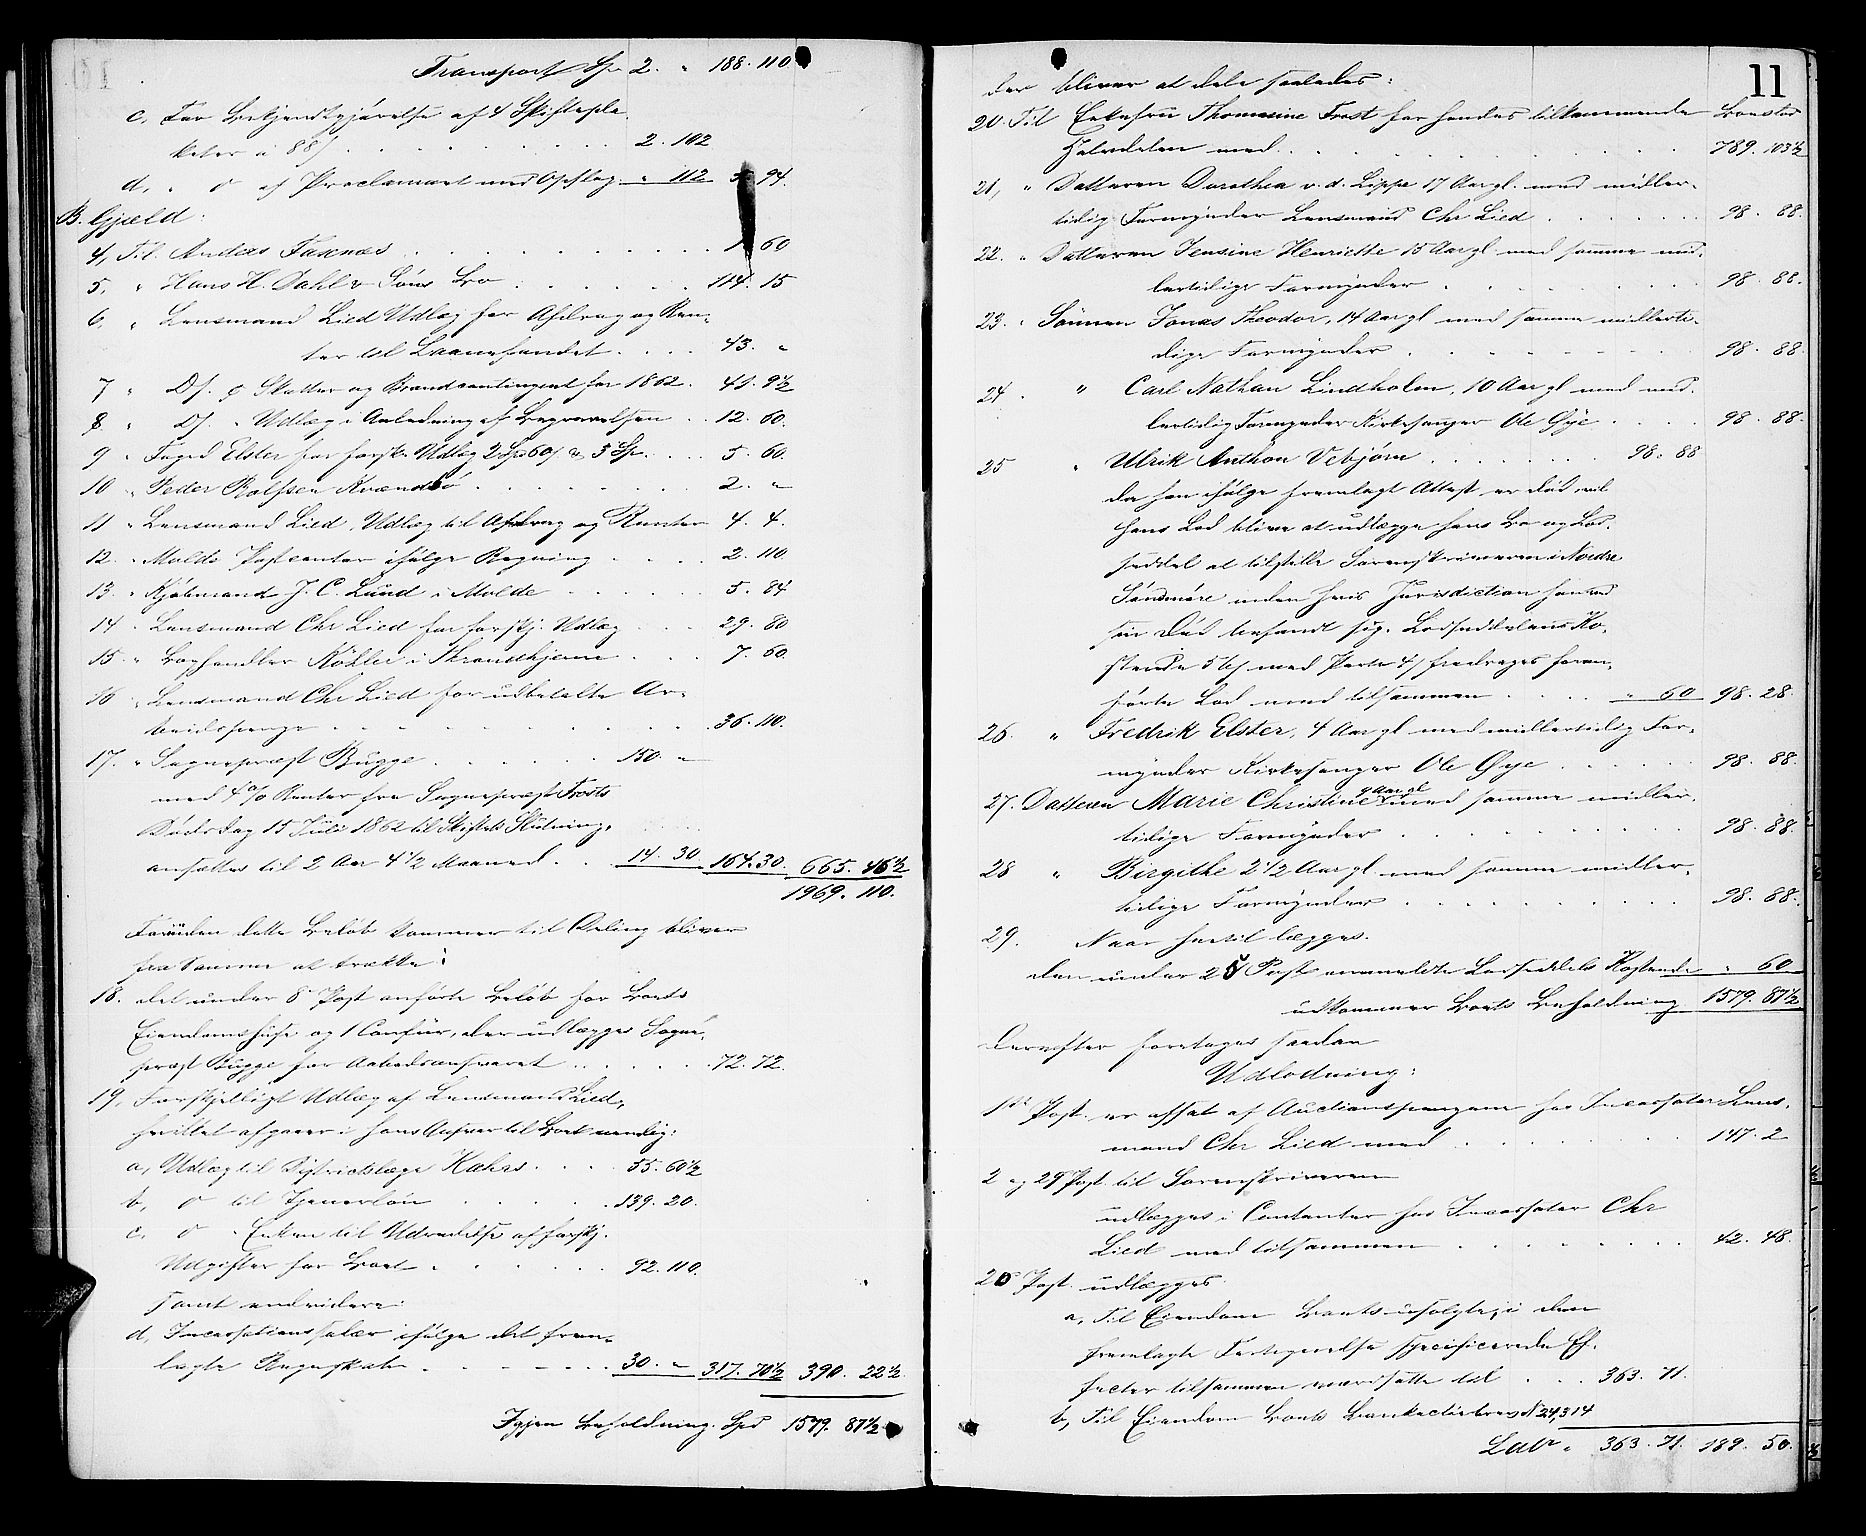 Transport Sp 2. " 188. 110
c, For Bekjendtgjørelse af 4 Skifteplakater a 88 ʃ . . . 2. 102
d, " d af Proclamaet med Opslag. " 112 94.
B. Gjæld:
4, Til Anders Farnæs . . . 60
5, " Hans H. Dahl & Søns Bo . . . 114. 15
6, " Lensmand Lied Udlæg for Afdrag og Renter
til Laanefondet . . . 43. "
7 " Ds. " Skatter og Brandcontingent for 1862. 41. 9½
8 " Ds. " Udlæg i Anledning af Begravelsen . . 12. 60.
9 " Foged Elster for forsk. Udlæg 2 Spd 60 ʃ & 3 Sp. . . 5. 60.
10 " Peder Rolfsen Kvændbø . . . 2. "
11 " Lensmand Lied, Udlæg til Afdrag og Renter 4. 4.
12. " Molde Postcontor ifølge Regning . . . 2. 110
13. " Kjøbmand J. C. Lund i Molde . . . 5. 84
14 " Lensmand Chr Lied for forskj. Udlæg . . 29. 80
15. " Boghandler Köhler i Throndhjem . . . 7. 60.
16 " Lensmand Chr Lied for udbetalte Ar-
beidspenge . . . 36. 110.
17. " Sognepræst Bugge . . . 150. "
med 4 % Renter fra Sognepræst Frosts
Dødsdag 15 Juli 1862 til Skiftets Slutning,
ansættes til 2 Aar 4½ Maaned . . . 14. 30 164. 30. 665. 46½
1969. 110.
Forinden dette Beløb kommer til Deling bliver
fra samme at trække:
18. det under 8 Post anførte Beløb for Boets
Eiendomshuse og 1 Comfur, der udlægges Sogne-
præst Bugge for Aabodsansvaret . . . 72. 72.
19, Forskjelligt Udlæg af Lensmand Lied,
hvilket afgaaer i hans Ansvar til Boet nemlig:
a, Udlæg til Districtslæge Kahrs . . . 55. 60½
b, d til Tjenerløn . . . 139. 20.
c, d " Enken til Udredelse af forskj.
Udgifter for Boet . . . 92. 110.
samt endvidere:
d, Incassationssalær ifølge det frem-
lagte Regnskab . . . 30. " 317. 70½ 390. 22½
Igjen Beholdning. Spd 1579. 87½
11
der bliver at dele saaledes:
20. Til Enkefru Thomasine Frost for hendes tilkommende Boeslod
Halvdelen med . . . 789. 103½
21, " Datteren Dorothea v. d. Lippe 17 Aar gl. med midler-
tidig Formynder Lensmand Chr Lied . . . 98. 88.
22. " Datteren Jensine Henriette 15 Aar gl med samme mid-
lertidige Formynder . . . 98. 88.
23. " Sønnen Jonas Theodor, 14 Aar gl med samme midlerti-
dige Formynder . . . 98. 88.
24 " Carl Nathan Lindholm, 10 Aar gl med mid-
lertidig Formynder Kirkesanger Ole Øye . . . 98. 88.
25 " Ulrik Anthon Vebjørn . . . 98. 88
da han ifølge fremlagt Attest er død, vil
hans Lod blive at udlægge hans Bo og Lod-
seddel at tilstille Sorenskriveren i Nordre
Søndmøre under hvis Jurisdiction han ved
sin Død befandt sig. Lodseddelens Ko-
stende 56 ʃ med Porto 4 ʃ fradrages foran-
førte Lod med tilsammen . . . " 60 98. 28.
26. " Fredrik Elster, 4 Aar gl med midlertidig For-
mynder Kirkesanger Ole Øye . . . 98. 88.
27. Datteren Marie Christine 9 Aar gl med samme midler-
tidige Formynder . . . 98. 88.
28 " Birgithe 2½ Aar gl. med samme midler-
tidige Formynder . . . 98. 88.
29. Naar hertil lægges.
den under 25 Post anmeldte Lodseddels Kostende " 60
udkommer Boets Beholdning 1579. 87½
Derefter foretoges saadan
Udlodning:
1ste Post er afsat af Auctionspengene hos Incassator Lens-
mand Chr Lied med . . . 147. 2
2 og 29 Post til Sorenskriveren
udlægges i Contanter hos Incassator Chr
Lied med tilsammen . . . 42. 48.
20 Post udlægges
a, Til Eiendom Boets usolgte, i den
fremlagte Fortegnelse specificerede Ef-
fecter tilsammen værdsatte til . . . 363. 71.
b, Til Eiendom Boets Bankactiebrev N 24,314
Lab " 363. 71. 189. 50.